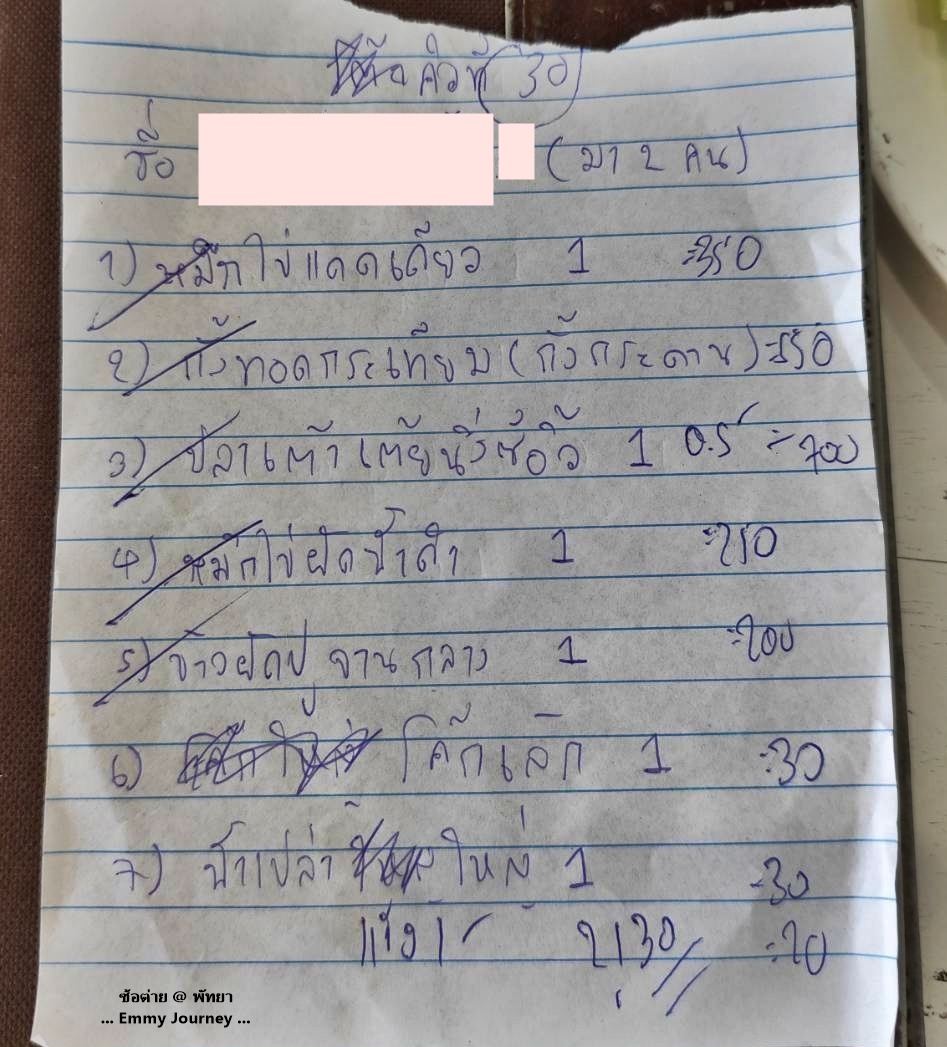 คิวที่ 30
ชื่อ (มา 2 คน)
1) หมึกไข่แดดเดียว 1 =350
2) กั้งทอดกระเทียม (กั้งกระดาน) =550
3) ปลาเต๋าเต้ยนึ่งซีอิ้ว 1 0.5 = 700
4) หมึกไข่ผัดน้ำดำ 1 =250
5) ข้าวผัดปู จานกลาง 1 =200
6) โค๊กเล็ก 1 =30
7) น้ำเปล่า ใหญ่ 1 =30
แข็ง 1 2,130 =20
ซ้อต่าย @ พัทยา
... Emmy Journey ...